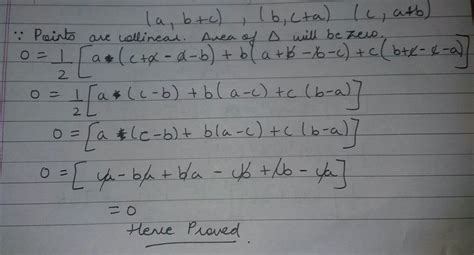 (a, b+c) , (b, c+a) (c, a+b)
∵ Points are collinear. Area of Δ will be zero.
0 = 1/2 [a*(c+a-a-b) + b(a+b-b-c) + c(b+c-c-a)]
0 = 1/2 [a*(c-b) + b(a-c) + c(b-a)]
0 = [a*(c-b) + b(a-c) + c(b-a)]
0 = [ca - ba + ba - cb + cb - ca]
= 0
Hence Proved.